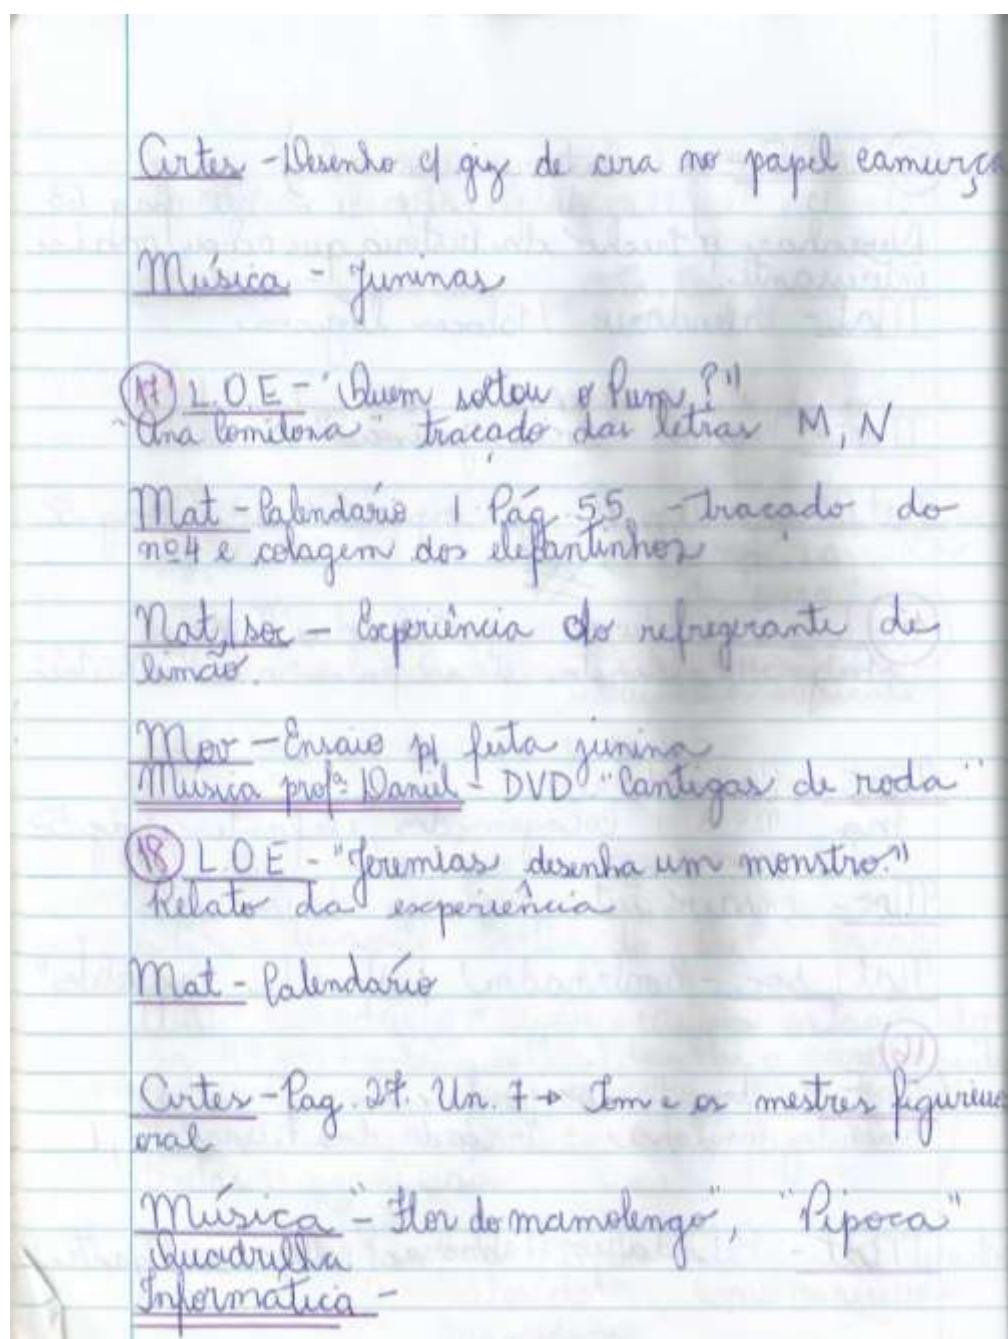 Artes - Desenho c/ giz de cera no papel camurça
Música - Juninas
17 L.O.E - "Quem soltou o Pum?"
"Ana Comilona" traçado das letras M, N
Mat - Calendário / Pág 55 - Traçado do
nº 4 e colagem dos elefantinhos
Nat/soc - Experiência do refrigerante de
limão.
Mov - Ensaio p/ festa junina
Música profº Daniel - DVD "Cantigas de roda"
18 L.O.E - "Jeremias desenha um monstro"
Relato da experiência
Mat - Calendário
Artes - Pag. 27. Un. 7 → Tom e os mestres
oral
Música - "Flor do mamolengo", "Pipoca"
Quadrilha
Informática -